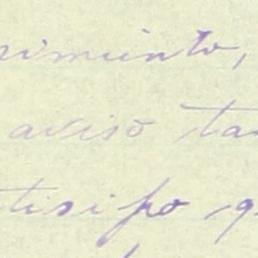 rimiento,
aviso ta
tisipo q